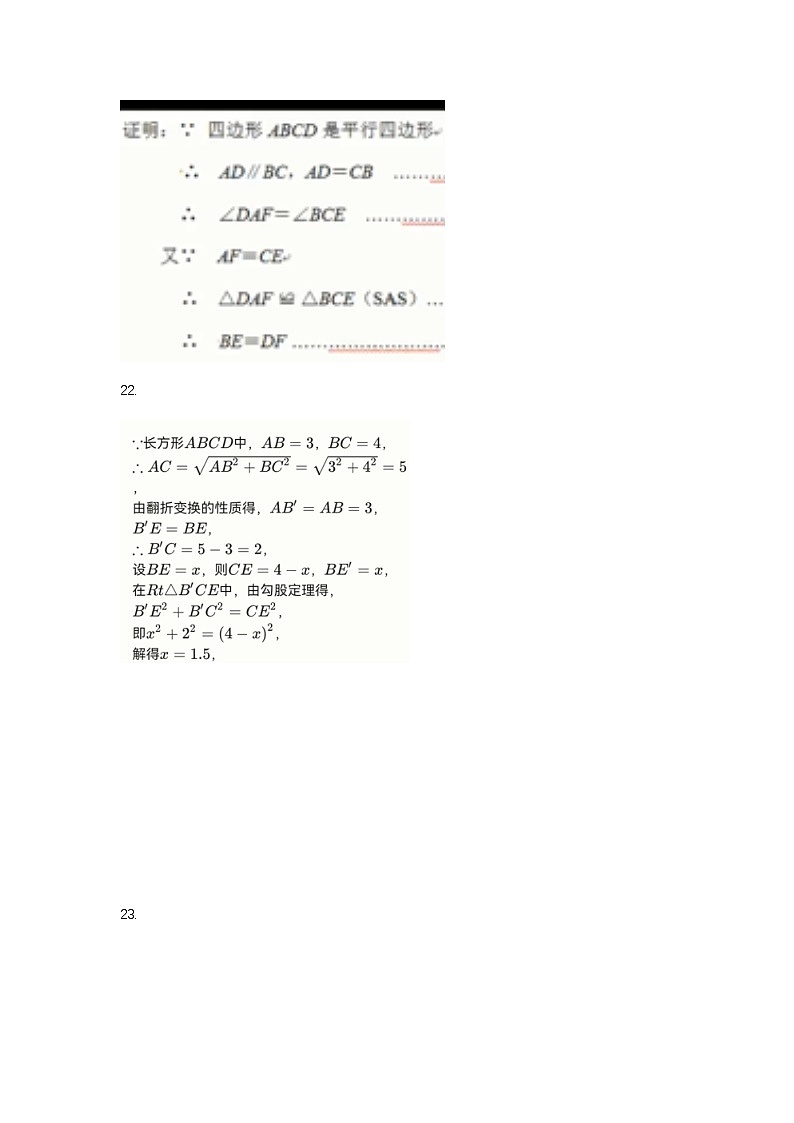 证明：∵ 四边形 ABCD 是平行四边形
∴ AD∥BC，AD＝CB ………
∴ ∠DAF＝∠BCE ……………
又∵ AF＝CE
∴ △DAF ≌ △BCE（SAS）…
∴ BE＝DF ………………………
22.
∵长方形ABCD中，AB = 3，BC = 4，
∴ AC = √(AB² + BC²) = √(3² + 4²) = 5
，
由翻折变换的性质得，AB′ = AB = 3，
B′E = BE，
∴ B′C = 5 − 3 = 2，
设BE = x，则CE = 4 − x，BE′ = x，
在Rt△B′CE中，由勾股定理得，
B′E² + B′C² = CE²，
即x² + 2² = (4 − x)²，
解得x = 1.5，
23.